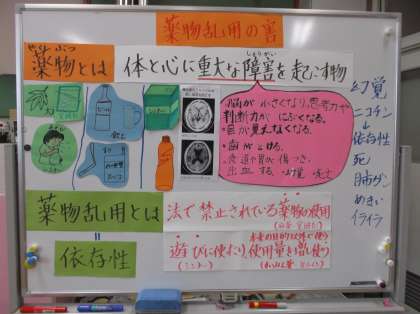 薬物乱用の害
やく ぶつ
薬物とは
しょうがい
体と心に重大な障害を起こす物
・脳が小さくなり、思考力や
判断力がにぶくなる。
・目が見えなくなる。
・歯がとける。
・食道や胃が傷つき、
出血する
幻覚
ニコチン
↓
依存性
死
肺ガン
めまい
イライラ
薬物乱用とは
法で禁止されている薬物の使用
=
依存性
本来の目的以外で使う
遊びに使ったり、使用量を増し使う
(シンナー)